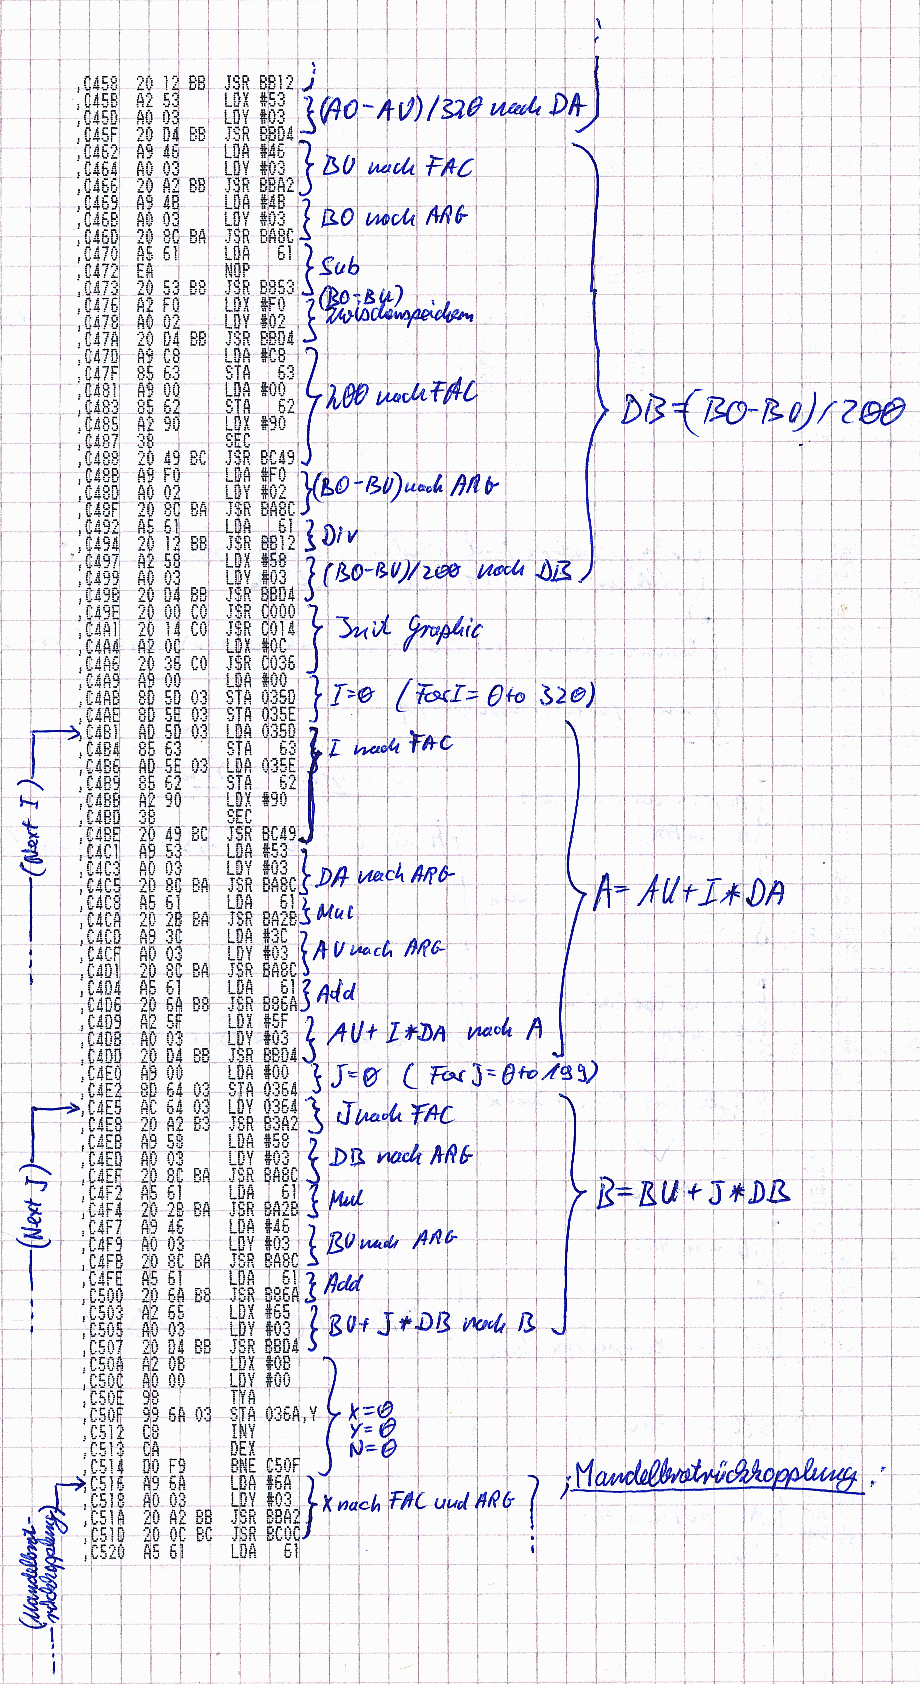 ,C458 20 12 BB JSR BB12
,C45B A2 53 LDX #53
,C45D A0 03 LDY #03 (AO-AU)/320 nach DA
,C45F 20 D4 BB JSR BBD4
,C462 A9 46 LDA #46
,C464 A0 03 LDY #03 BU nach FAC
,C466 20 A2 BB JSR BBA2
,C469 A9 4B LDA #4B
,C46B A0 03 LDY #03 BO nach ARG
,C46D 20 8C BA JSR BA8C
,C470 A5 61 LDA 61
,C472 EA NOP Sub
,C473 20 53 B8 JSR B853
,C476 A2 F0 LDX #F0 (BO-BU)
,C478 A0 02 LDY #02 zwischenspeichern
,C47A 20 D4 BB JSR BBD4
,C47D A9 C8 LDA #C8
,C47F 85 63 STA 63
,C481 A9 00 LDA #00 200 nach FAC
,C483 85 62 STA 62
,C485 A2 90 LDX #90 DB=(BO-BU)/200
,C487 38 SEC
,C488 20 49 BC JSR BC49
,C48B A9 F0 LDA #F0
,C48D A0 02 LDY #02 (BO-BU) nach ARG
,C48F 20 8C BA JSR BA8C
,C492 A5 61 LDA 61 Div
,C494 20 12 BB JSR BB12
,C497 A2 58 LDX #58
,C499 A0 03 LDY #03 (BO-BU)/200 nach DB
,C49B 20 D4 BB JSR BBD4
,C49E 20 00 C0 JSR C000
,C4A1 20 14 C0 JSR C014 Init Graphic
,C4A4 A2 0C LDX #0C
,C4A6 20 36 C0 JSR C036
,C4A9 A9 00 LDA #00
,C4AB 8D 5D 03 STA 035D I=0 (For I=0 to 320)
,C4AE 8D 5E 03 STA 035E
,C4B1 AD 5D 03 LDA 035D
,C4B4 85 63 STA 63 I nach FAC
,C4B6 AD 5E 03 LDA 035E
,C4B9 85 62 STA 62
,C4BB A2 90 LDX #90
,C4BD 38 SEC
,C4BE 20 49 BC JSR BC49
(Next I)
,C4C1 A9 53 LDA #53
,C4C3 A0 03 LDY #03 DA nach ARG
,C4C5 20 8C BA JSR BA8C
,C4C8 A5 61 LDA 61 A=AU+I*DA
,C4CA 20 2B BA JSR BA2B Mul
,C4CD A9 3C LDA #3C
,C4CF A0 03 LDY #03 AU nach ARG
,C4D1 20 8C BA JSR BA8C
,C4D4 A5 61 LDA 61 Add
,C4D6 20 6A B8 JSR B86A
,C4D9 A2 5F LDX #5F
,C4DB A0 03 LDY #03 AU+I*DA nach A
,C4DD 20 D4 BB JSR BBD4
,C4E0 A9 00 LDA #00 J=0 (For J=0 to 199)
,C4E2 8D 64 03 STA 0364
,C4E5 AC 64 03 LDY 0364 J nach FAC
,C4E8 20 A2 B3 JSR B3A2
,C4EB A9 58 LDA #58
,C4ED A0 03 LDY #03 DB nach ARG
,C4EF 20 8C BA JSR BA8C
,C4F2 A5 61 LDA 61 Mul B=BU+J*DB
,C4F4 20 2B BA JSR BA2B
(Next J)
,C4F7 A9 46 LDA #46
,C4F9 A0 03 LDY #03 BU nach ARG
,C4FB 20 8C BA JSR BA8C
,C4FE A5 61 LDA 61 Add
,C500 20 6A B8 JSR B86A
,C503 A2 65 LDX #65
,C505 A0 03 LDY #03 BU+J*DB nach B
,C507 20 D4 BB JSR BBD4
,C50A A2 0B LDX #0B
,C50C A0 00 LDY #00
,C50E 98 TYA
,C50F 99 6A 03 STA 036A,Y X=0
,C512 C8 INY Y=0
,C513 CA DEX N=0
,C514 D0 F9 BNE C50F
;Mandelbrotrückkopplung:
,C516 A9 6A LDA #6A
,C518 A0 03 LDY #03 X nach FAC und ARG
,C51A 20 A2 BB JSR BBA2
,C51D 20 0C BC JSR BC0C
,C520 A5 61 LDA 61
(Mandelbrot-
rückkopplung)